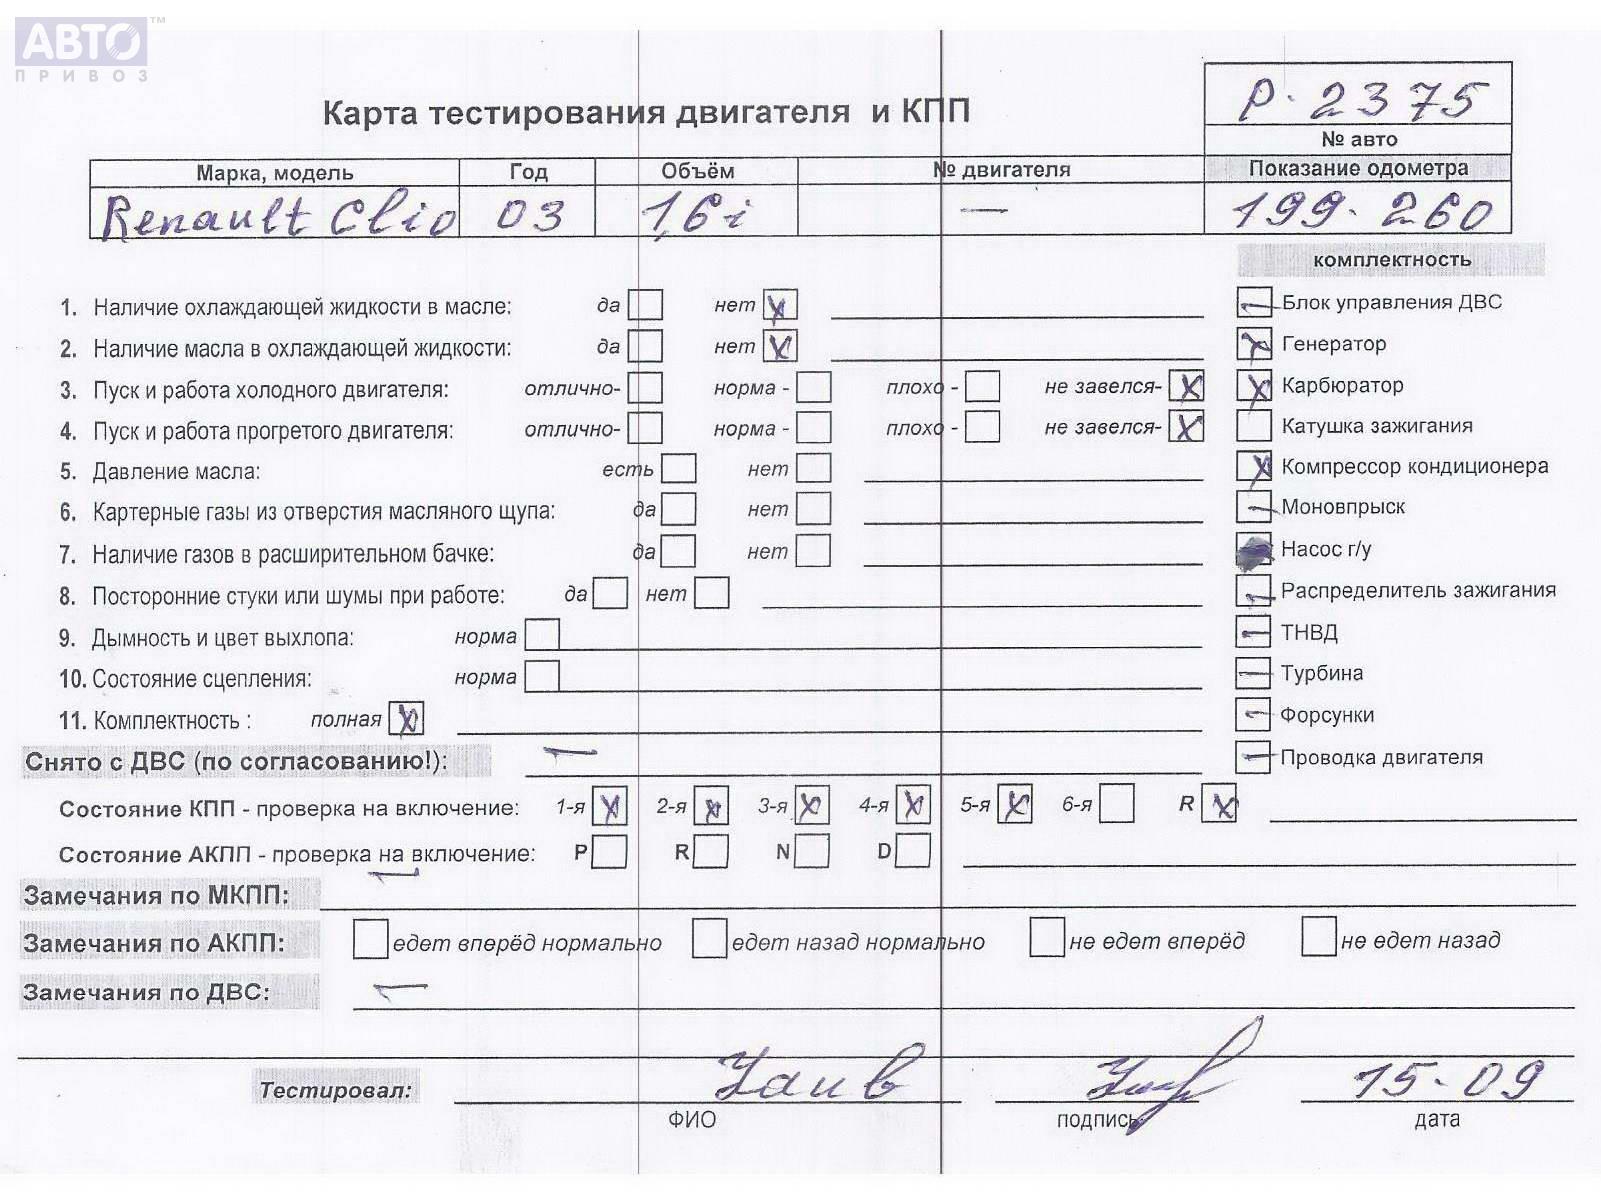 АВТО™
ПРИВОЗ
Карта тестирования двигателя и КПП
P-2375
№ авто
Марка, модель Год Объём № двигателя Показание одометра
Renault Clio 03 1,6i — 199.260
комплектность
1. Наличие охлаждающей жидкости в масле: да нет x
Блок управления ДВС
2. Наличие масла в охлаждающей жидкости: да нет x
Генератор
3. Пуск и работа холодного двигателя: отлично- норма - плохо - не завелся- x
Карбюратор
4. Пуск и работа прогретого двигателя: отлично- норма - плохо - не завелся- x
Катушка зажигания
5. Давление масла: есть нет
Компрессор кондиционера
6. Картерные газы из отверстия масляного щупа: да нет
Моновпрыск
7. Наличие газов в расширительном бачке: да нет
Насос г/у
8. Посторонние стуки или шумы при работе: да нет
Распределитель зажигания
9. Дымность и цвет выхлопа: норма
ТНВД
10. Состояние сцепления: норма
Турбина
11. Комплектность : полная x
Форсунки
Снято с ДВС (по согласованию!): —
Проводка двигателя
Состояние КПП - проверка на включение: 1-я x 2-я x 3-я x 4-я x 5-я x 6-я R x
Состояние АКПП - проверка на включение: P R N D
Замечания по МКПП: —
Замечания по АКПП: едет вперёд нормально едет назад нормально не едет вперёд не едет назад
Замечания по ДВС: —
Тестировал: 15-09
ФИО подпись дата